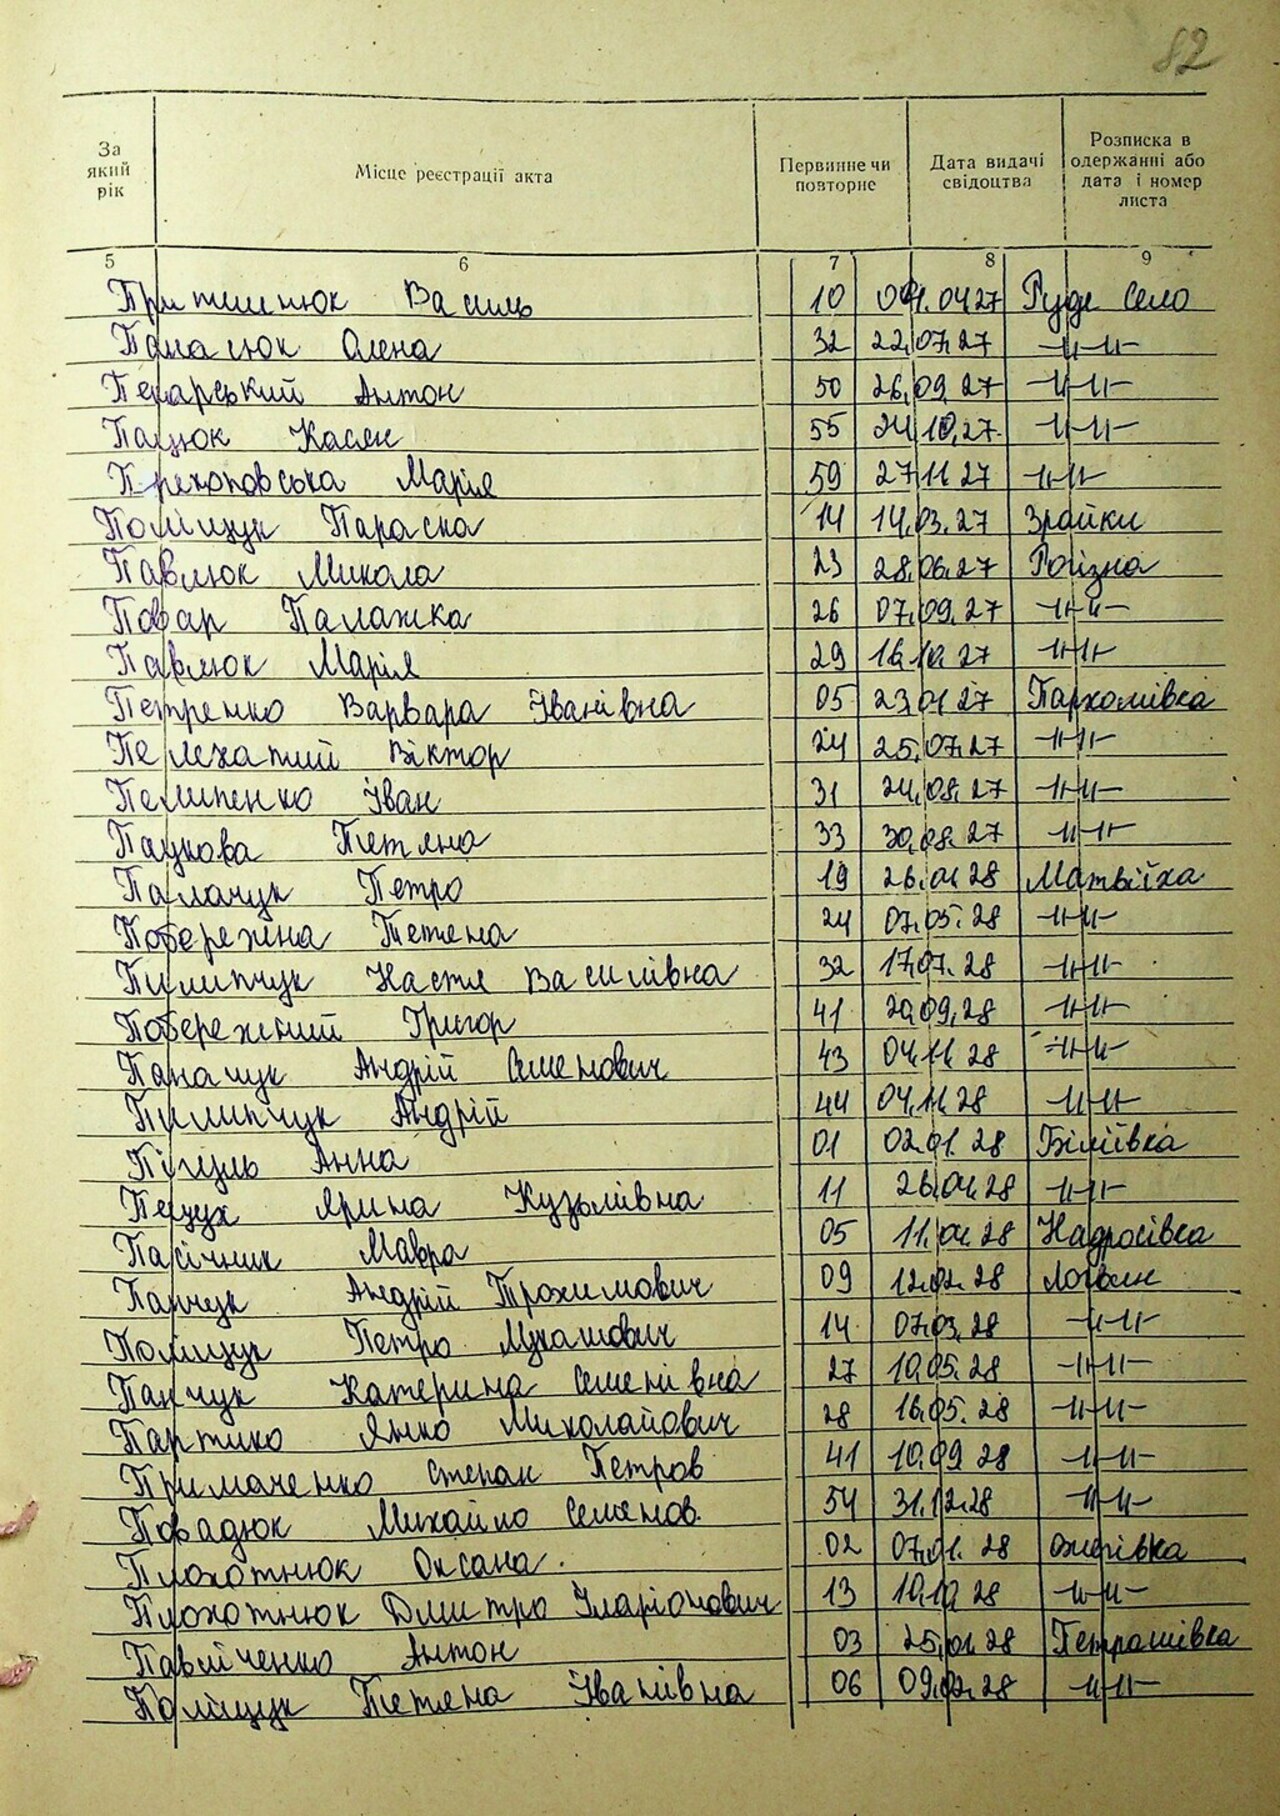 82
За який рік
Місце реєстрації акта
Первинне чи повторне
Дата видачі свідоцтва
Розписка в одержанні або дата і номер листа
5 6 7 8 9
Василь 10 04.27 Руде Село
Олена 32 22.07.27 -//-//-
Пекарський Антон 50 26.09.27 -//-//-
Пацюк Касян 55 24.10.27 -//-//-
Марія 59 27.11.27 -//-//-
Поліщук Параска 14 14.03.27 Зрайки
Павлюк Микола 23 28.06.27 Рогізна
Повар Палажка 26 07.09.27 -//-//-
Павлюк Марія 29 16.10.27 -//-//-
Петренко Варвара Іванівна 05 23.01.27 Пархомівка
Пелехатий Віктор 24 25.07.27 -//-//-
Пелипенко Іван 31 24.08.27 -//-//-
Пацкова Тетяна 33 30.08.27 -//-//-
Петро 19 26.04.28 Матвіїха
Побережна Тетяна 24 07.05.28 -//-//-
Пилипчук Настя Василівна 32 17.07.28 -//-//-
Побережний Григор 41 20.09.28 -//-//-
Паначук Андрій Семенович 43 04.11.28 -//-//-
Пилипчук Андрій 44 04.11.28 -//-//-
Анна 01 02.01.28 Біліївка
Пецух Ярина Кузьмівна 11 26.04.28 -//-//-
Пасічник Мавра 05 11.04.28 Надросівка
Панчук Андрій Трохимович 09 12.02.28 Логвин
Поліщук Петро Лукашович 14 07.03.28 -//-//-
Панчук Катерина Семенівна 27 10.05.28 -//-//-
Партико Янко Миколайович 28 16.05.28 -//-//-
Примаченко Степан Петров 41 10.09.28 -//-//-
Повадюк Михайло Семенов. 54 31.12.28 -//-//-
Плохотнюк Оксана. 02 07.01.28 Ожегівка
Плохотнюк Дмитро Іларіонович 13 10.10.28 -//-//-
Павліченко Антон 03 25.01.28 Петрашівка
Поліщук Тетяна Іванівна 06 09.02.28 -//-//-